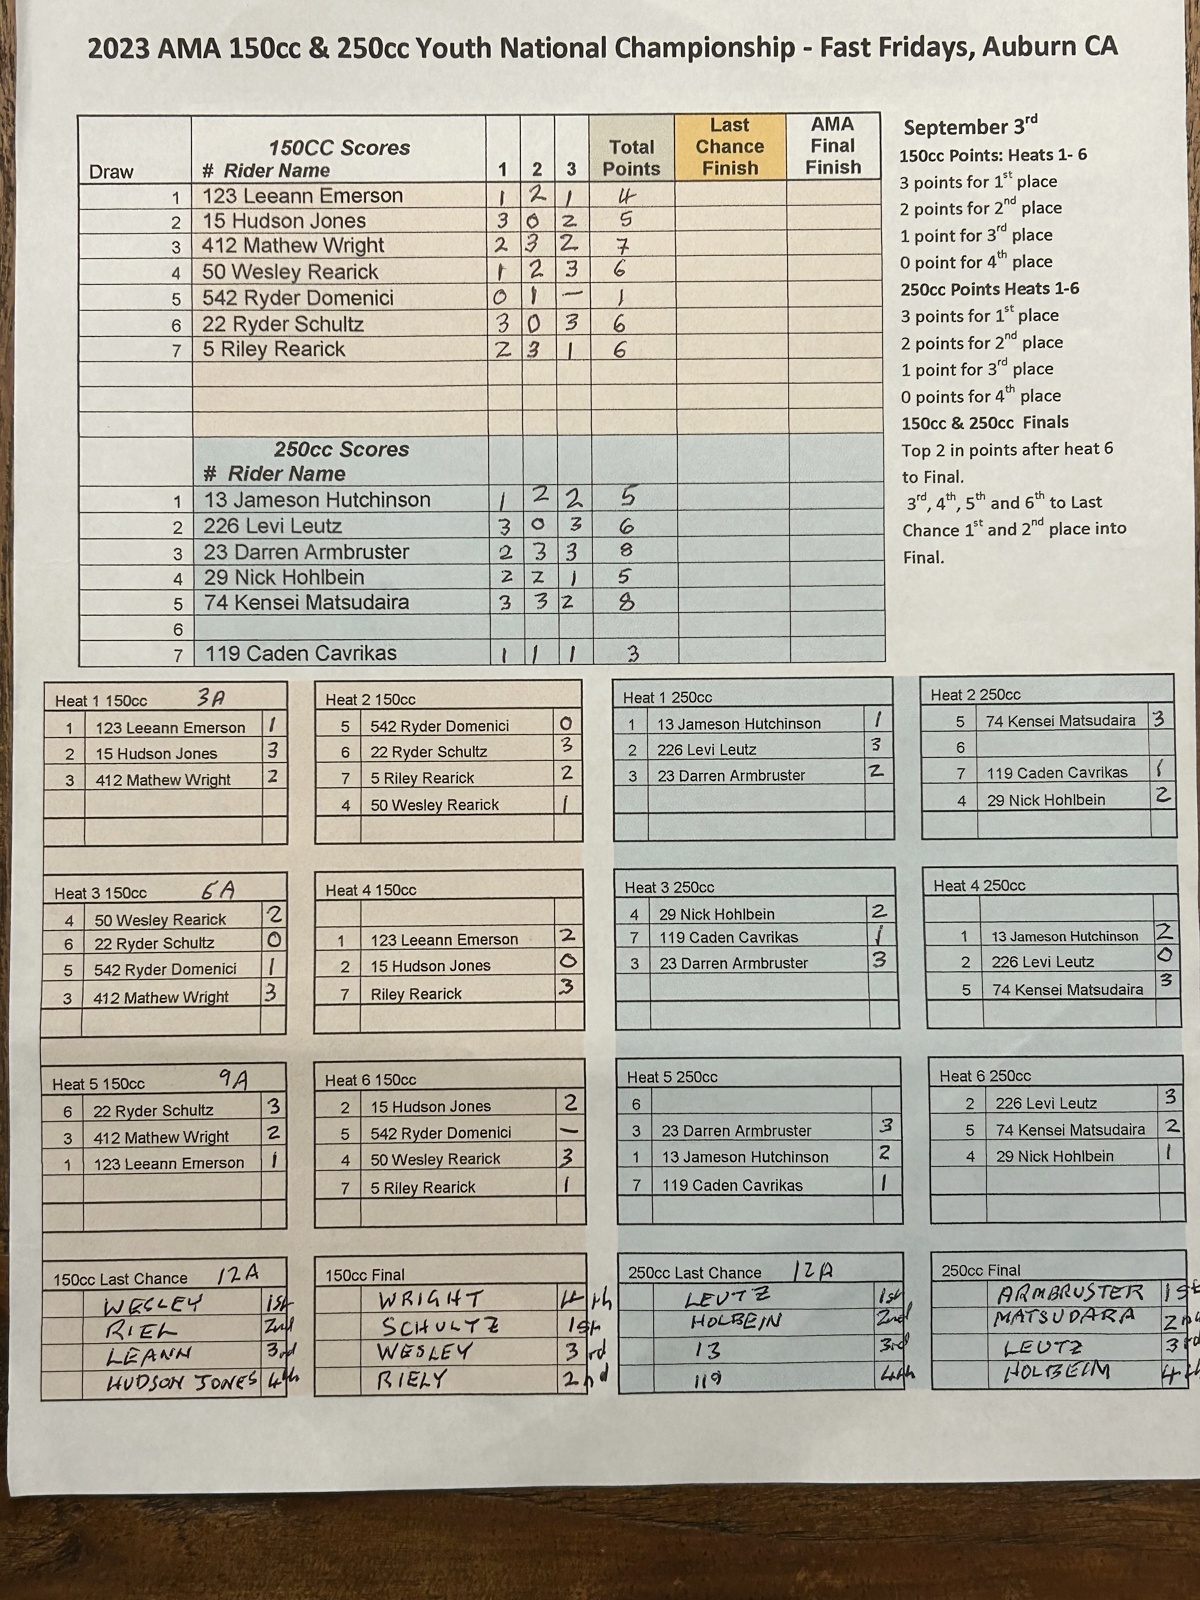 2023 AMA 150cc & 250cc Youth National Championship - Fast Fridays, Auburn CA
Draw 150CC Scores # Rider Name 1 2 3 Total Points Last Chance Finish AMA Final Finish
1 123 Leeann Emerson 1 2 1 4
2 15 Hudson Jones 3 0 2 5
3 412 Mathew Wright 2 3 2 7
4 50 Wesley Rearick 1 2 3 6
5 542 Ryder Domenici 0 1 — 1
6 22 Ryder Schultz 3 0 3 6
7 5 Riley Rearick 2 3 1 6
250cc Scores
# Rider Name
1 13 Jameson Hutchinson 1 2 2 5
2 226 Levi Leutz 3 0 3 6
3 23 Darren Armbruster 2 3 3 8
4 29 Nick Hohlbein 2 2 1 5
5 74 Kensei Matsudaira 3 3 2 8
6
7 119 Caden Cavrikas 1 1 1 3
September 3rd
150cc Points: Heats 1- 6
3 points for 1st place
2 points for 2nd place
1 point for 3rd place
0 point for 4th place
250cc Points Heats 1-6
3 points for 1st place
2 points for 2nd place
1 point for 3rd place
0 points for 4th place
150cc & 250cc Finals
Top 2 in points after heat 6
to Final.
3rd, 4th, 5th and 6th to Last
Chance 1st and 2nd place into
Final.
Heat 1 150cc 3A
1 123 Leeann Emerson 1
2 15 Hudson Jones 3
3 412 Mathew Wright 2
Heat 2 150cc
5 542 Ryder Domenici 0
6 22 Ryder Schultz 3
7 5 Riley Rearick 2
4 50 Wesley Rearick 1
Heat 1 250cc
1 13 Jameson Hutchinson 1
2 226 Levi Leutz 3
3 23 Darren Armbruster 2
Heat 2 250cc
5 74 Kensei Matsudaira 3
6
7 119 Caden Cavrikas 1
4 29 Nick Hohlbein 2
Heat 3 150cc 6A
4 50 Wesley Rearick 2
6 22 Ryder Schultz 0
5 542 Ryder Domenici 1
3 412 Mathew Wright 3
Heat 4 150cc
1 123 Leeann Emerson 2
2 15 Hudson Jones 0
7 Riley Rearick 3
Heat 3 250cc
4 29 Nick Hohlbein 2
7 119 Caden Cavrikas 1
3 23 Darren Armbruster 3
Heat 4 250cc
1 13 Jameson Hutchinson 2
2 226 Levi Leutz 0
5 74 Kensei Matsudaira 3
Heat 5 150cc 9A
6 22 Ryder Schultz 3
3 412 Mathew Wright 2
1 123 Leeann Emerson 1
Heat 6 150cc
2 15 Hudson Jones 2
5 542 Ryder Domenici —
4 50 Wesley Rearick 3
7 5 Riley Rearick 1
Heat 5 250cc
6
3 23 Darren Armbruster 3
1 13 Jameson Hutchinson 2
7 119 Caden Cavrikas 1
Heat 6 250cc
2 226 Levi Leutz 3
5 74 Kensei Matsudaira 2
4 29 Nick Hohlbein 1
150cc Last Chance 12A
WESLEY 1st
RIEL 2nd
LEANN 3rd
HUDSON JONES 4th
150cc Final
WRIGHT 4th
SCHULTZ 1st
WESLEY 3rd
RIELY 2nd
250cc Last Chance 12A
LEUTZ 1st
HOLBEIN 2nd
13 3rd
119 4th
250cc Final
ARMBRUSTER 1st
MATSUDARA 2nd
LEUTZ 3rd
HOLBEIM 4th